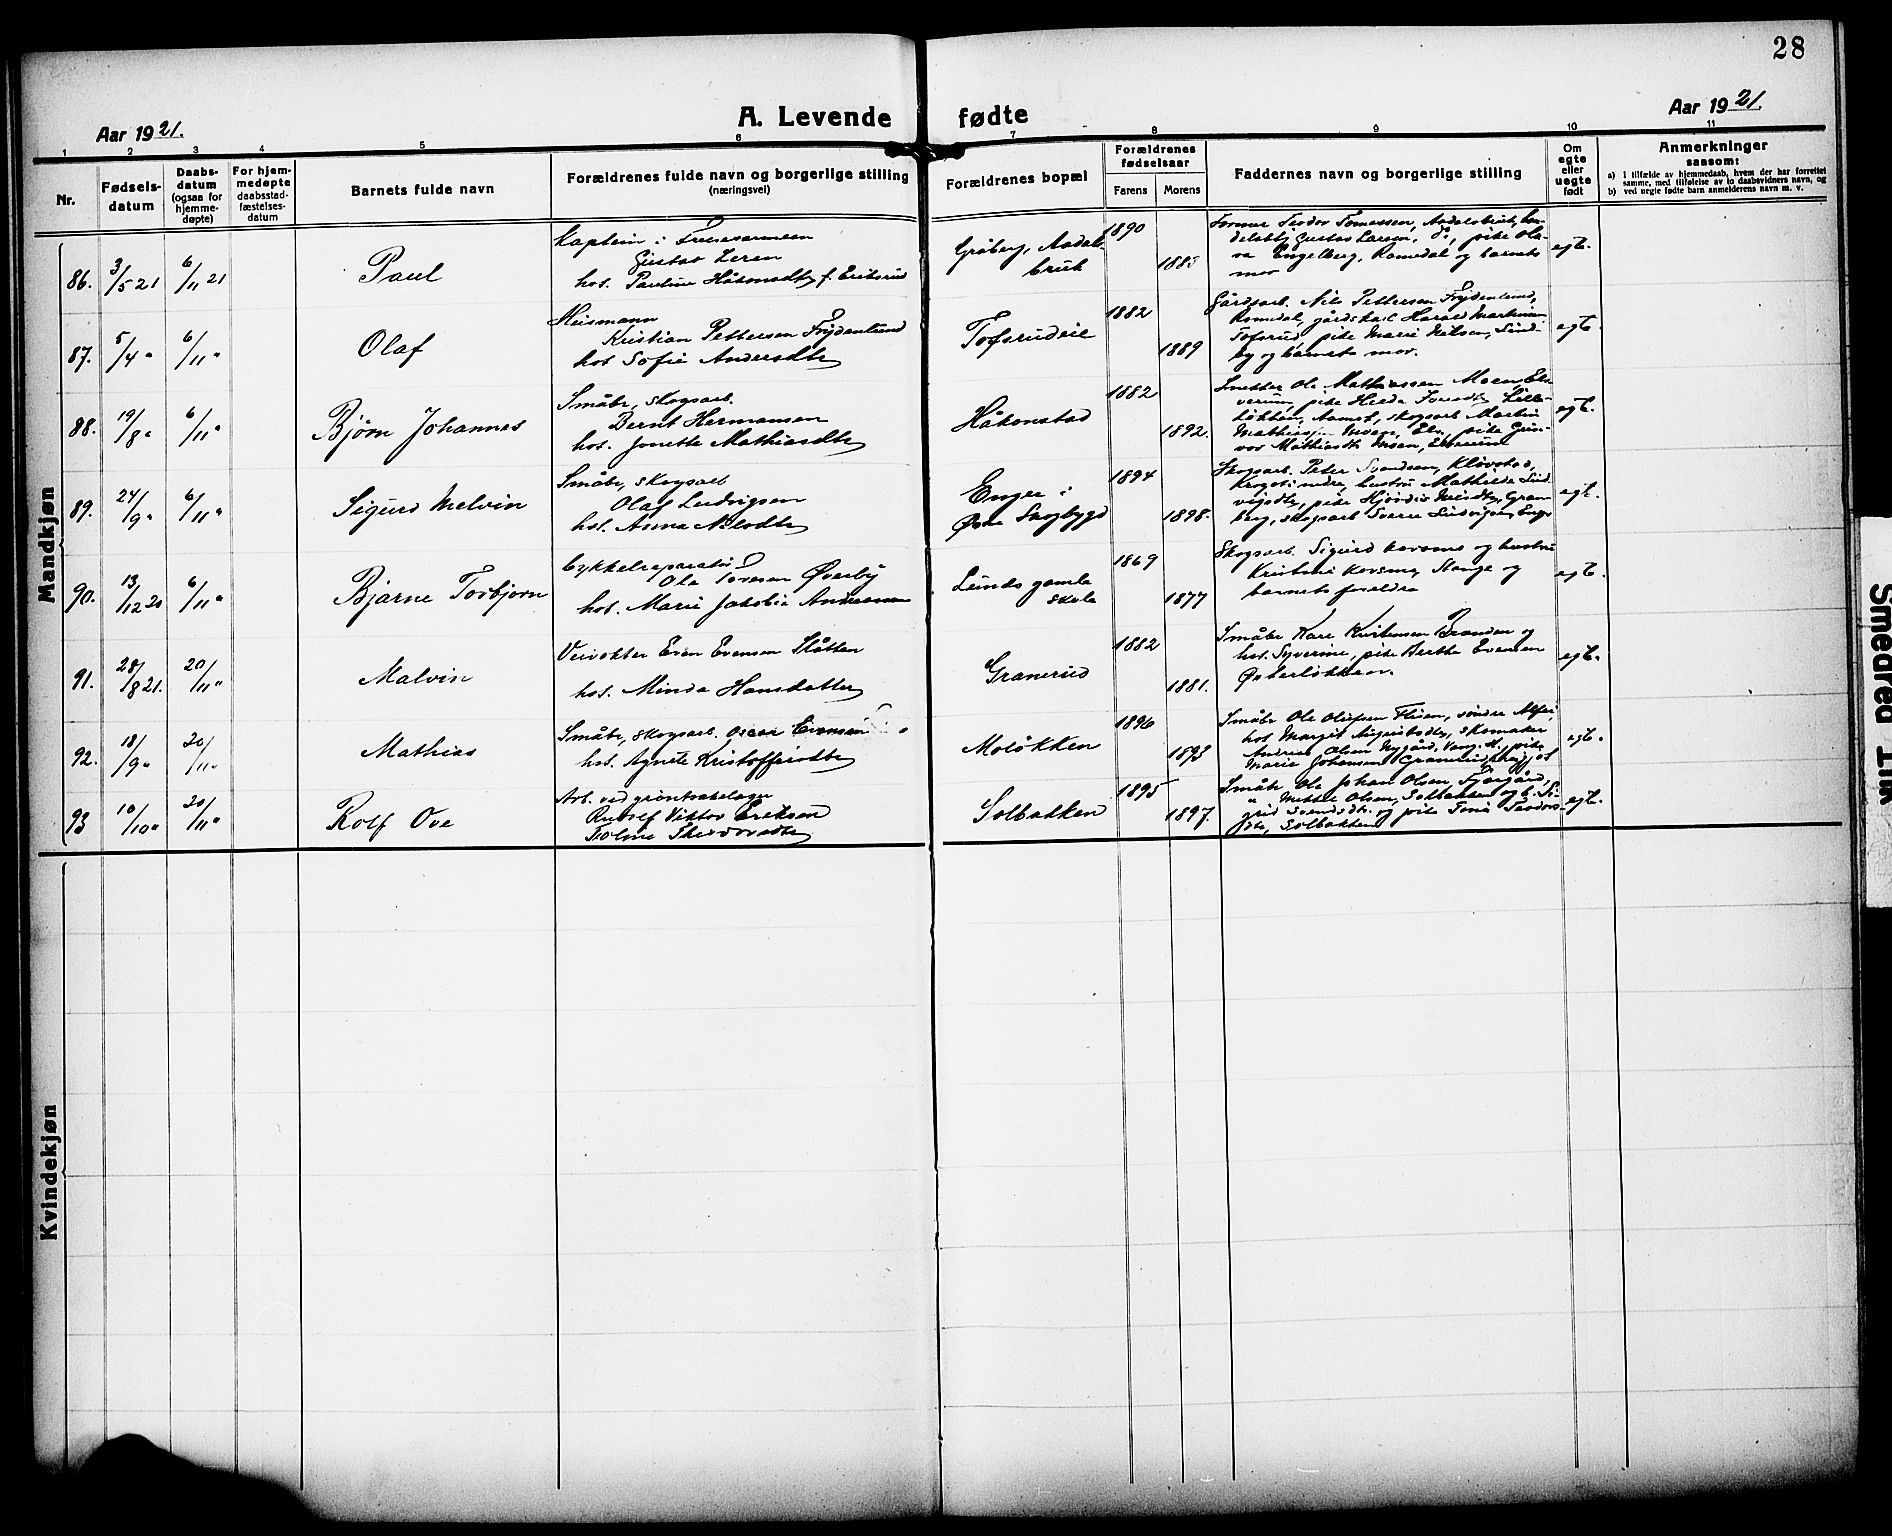 28
A. Levende fødte
Aar 1921.
Aar 1921.
1 2 3 4 5 6 7 8 9 10 11
Nr.
Fødsels-
datum
Daabs-
datum
(ogsaa for
hjemme-
døpte)
For hjem-
medøpte
daabsstad-
fæstelses-
datum
Barnets fulde navn
Forældrenes fulde navn og borgerlige stilling
(næringsvei)
Forældrenes bopæl
Forældrenes
fødselsaar
Farens Morens
Faddernes navn og borgerlige stilling
Om
egte
eller
uegte
født
Anmerkninger
saasom:
a) I tilfælde av hjemmedaab, hvem der har forrettet
samme, med tilføielse av to daabsvidners navn, og
b) ved uegte fødte barn anmelderens navn m. v.
Mandkjøn
86. 3/5 21 6/11 21 Paul
Kaptein i Frelsesarmeen
Gustav Leren
hst. Pauline Håkonsdtr f. Eriksrud
Gråberg, Aadals
bruk
1890 1885
Former Teodor Tomassen, Aadalsbruk, han-
delsbtj Gustav Larsen, do, pike Ola-
va Engelberg, Romedal og barnets
mor
egte.
87. 5/4 " 6/11 " Olaf
Heismann
Kristian Pettersen Frydenlund
hst Sofie Andersdtr
Tofsrudeie
1882 1889
Gårdsarb. Nils Pettersen Frydenlund,
Romedal, gårdskarl Harald Martinsen
Tofsrud, pike Marie Nilsen, Lind-
by og barnets mor.
egte.
88. 19/8 " 6/11 " Bjørn Johannes
Småbr., skogsarb.
Bernt Hermansen
hst. Jonette Mathiasdtr
Håkonstad
1882 1892.
Snekker Ole Mathiassen Moen, El-
verum, pike Hilda
løkken, Aamot, skogsarb Martin
Mathiassen Moen, Elv., pike Gun-
vor Mathiasdtr Moen, Elverum
egte.
89. 24/9 " 6/11 " Sigurd Melvin
Småbr., skogsarb
Olaf Ludvigsen
hst. Anna Nilsdtr
Enger i
Øvre Skogbygd
1894 1898.
Skogsarb. Peter Svendsen, Kløvstad,
Krogsti nedre, hustru Mathilde Lud-
vigsdtr, pike Hjørdis Nilsdtr, Gran-
berg, skogsarb Sverre Ludvigsen, Enger
egte.
90. 13/12 20 6/11 " Bjarne Torbjørn
Cykkelreparatør
Ole Iversen Øverby
hst. Marie Jakobie Andreassen
Lunds gamle
skole
1869 1877
Skogsarb. Sigurd Korsmo og hustru
Kristine Korsmo, Stange og
barnets foreldre
egte.
91. 28/8 21. 20/11 " Malvin
Veivokter Even Evensen Slåtten
hst. Minda Hansdatter
Granerud
1882 1881.
Småbr Kare Kristensen Brenden og
hst. Syverine, pike Berthe Evensen
Østerløkken.
egte.
92. 18/9 " 20/11 " Mathias
Småbr., skogsarb. Oscar Evensen
hst. Agnete Kristoffersdtr
Moløkken
1896 1893
Småbr Ole Olufsen Flisen, søndre Alfei,
hst Margit Augustsdtr, skomaker
Andreas Olsen Nygård, Vang H., pike
Marie Johansen Granerud
egte.
93 10/10 " 20/11 " Rolf Ove
Arb. ved grøntsakslager
Rudolf Viktor Eriksen
Tolme Theodorsdtr
Solbakken
1895 1897.
Småbr. Ole Johan Olsen Fjørgård,
" Mikkel Olsen, Solbakken og h. Si-
grid Svendsdtr. og pike Tina Teodors-
dtr, Solbakken
egte.
Kvindekjøn
Smedrud Tlik